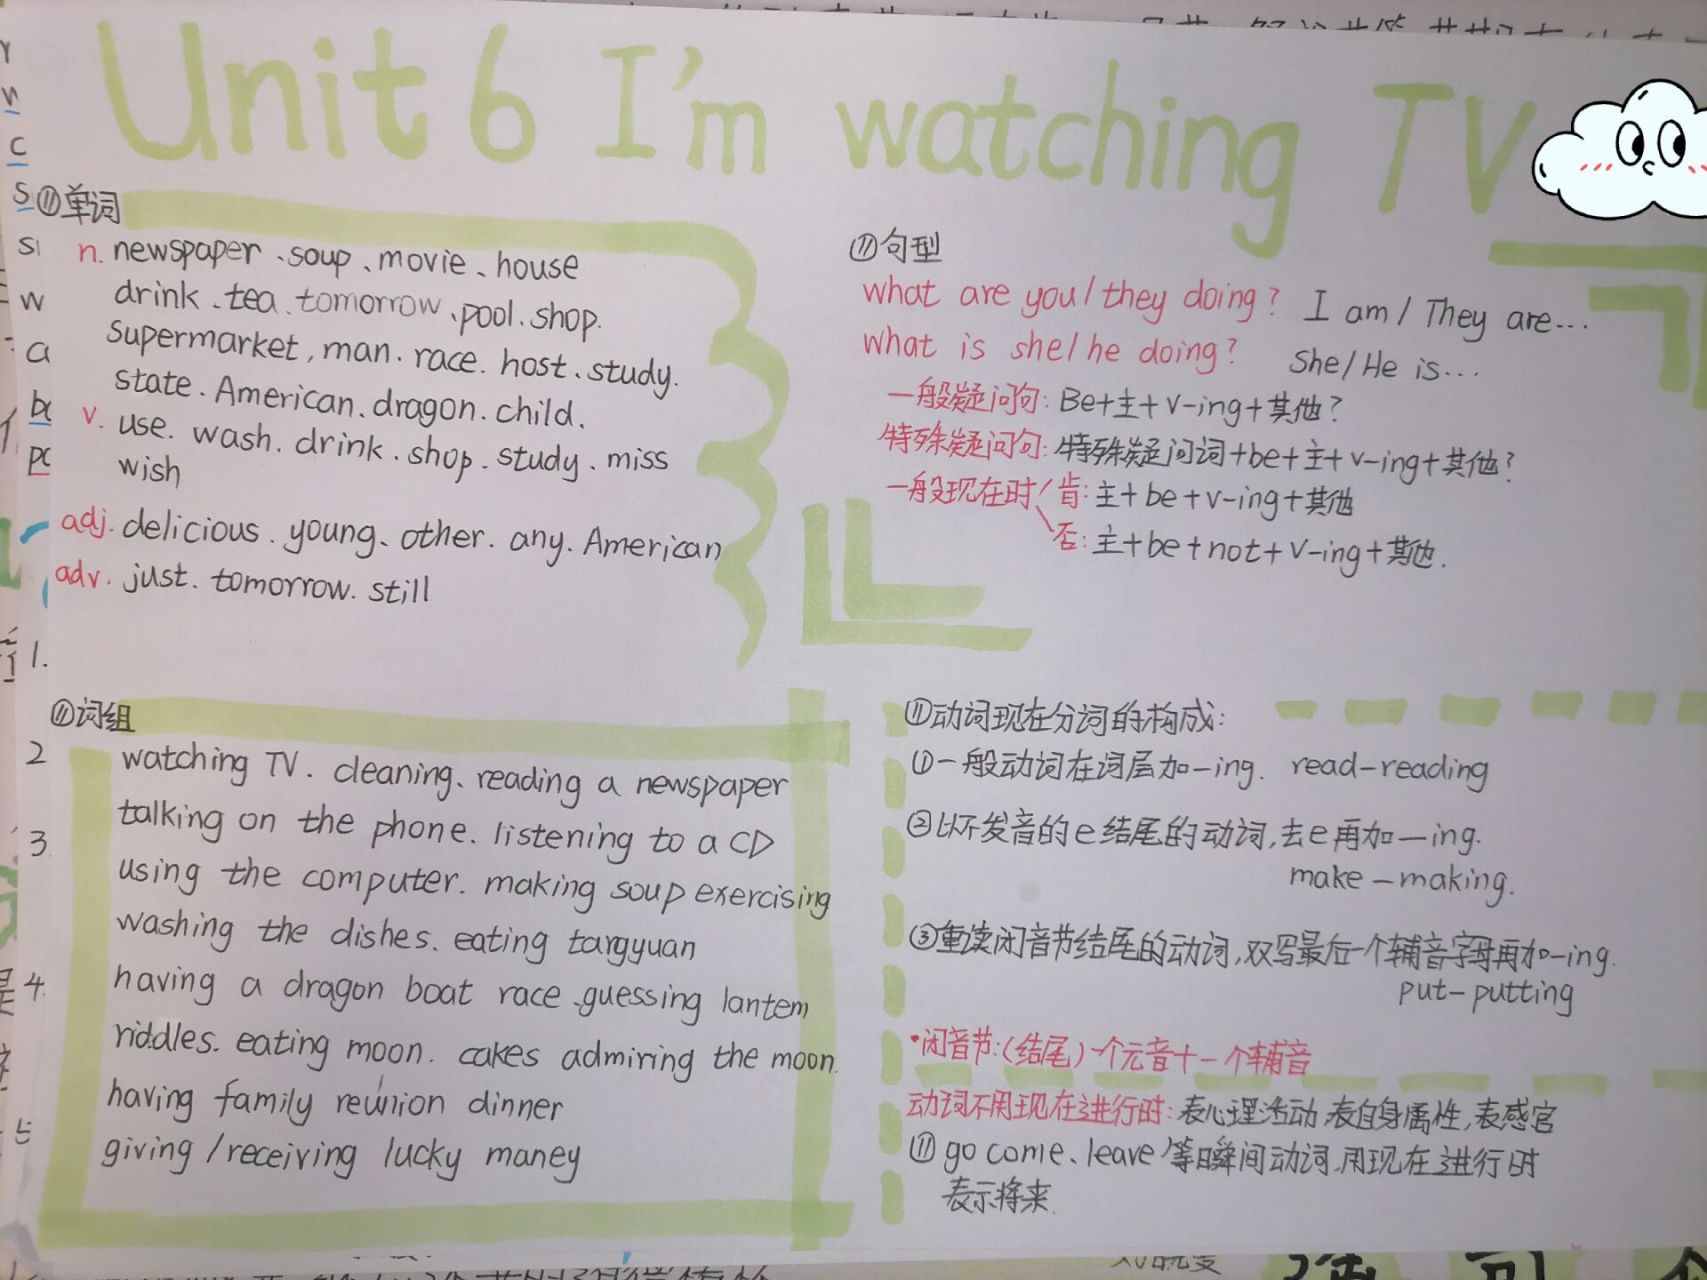 Unit 6 I'm watching TV
单词
n. newspaper、soup、movie、house
drink、tea、tomorrow、pool、shop.
supermarket, man. race. host、study.
state. American. dragon. child.
v. use. wash. drink. shop. study. miss
wish
adj. delicious. young. other. any. American
adv. just. tomorrow. still
句型
what are you/they doing? I am/They are...
what is she/he doing? She/He is...
一般疑问句: Be+主+v-ing+其他?
特殊疑问句: 特殊疑问词+be+主+v-ing+其他?
一般现在时 肯: 主+be+v-ing+其他
否: 主+be+not+v-ing+其他.
词组
watching TV. cleaning、reading a newspaper
talking on the phone. listening to a CD
using the computer. making soup exercising
washing the dishes. eating tangyuan
having a dragon boat race、guessing lantern
riddles. eating moon. cakes admiring the moon.
having family reunion dinner
giving/receiving lucky maney
动词现在分词的构成:
①一般动词在词尾加-ing. read-reading
②以不发音的e结尾的动词,去e再加-ing.
make-making.
③重读闭音节结尾的动词,双写最后一个辅音字母再加-ing.
put-putting
·闭音节:(结尾)一个元音+一个辅音
动词不用现在进行时: 表心理活动,表自身属性,表感官
go come、leave等瞬间动词.用现在进行时
表示将来.